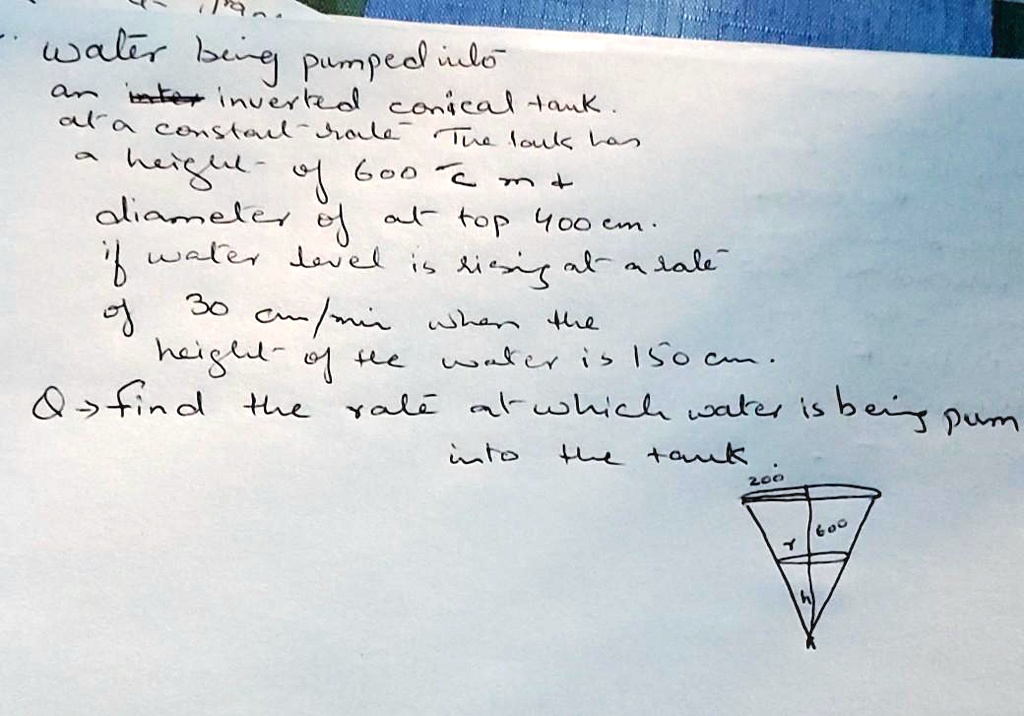 water being pumped into
an inverted conical tank.
at a constant rate The tank has
a height of 600 cm &
diameter of at top 400 cm.
if water level is rising at a rate
of 30 cm/min when the
height of the water is 150 cm.
Q → find the rate at which water is being pum
into the tank.
200
600
r
h